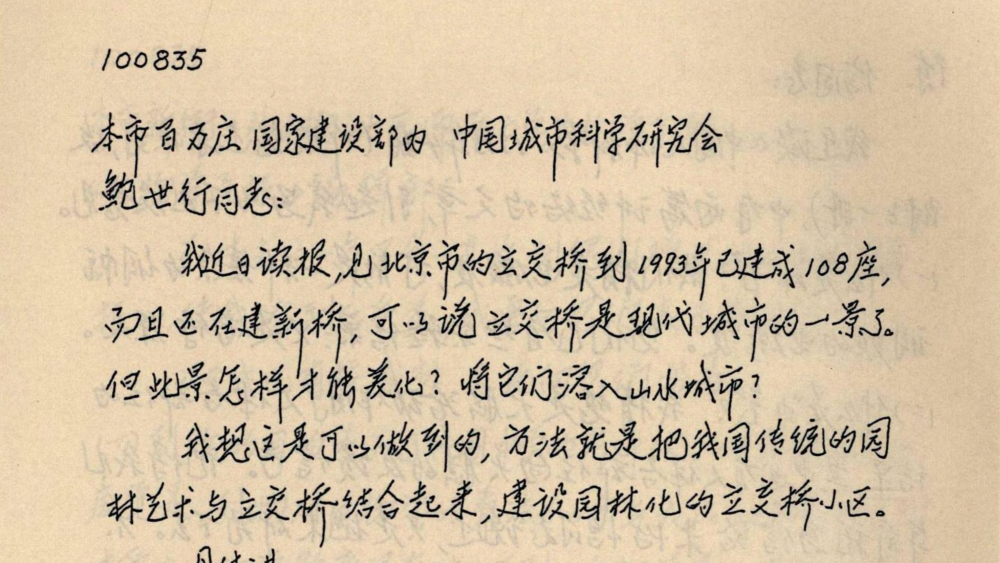 100835
本市百万庄国家建设部内 中国城市科学研究会
鲍世行同志:
我近日读报,见北京市的立交桥到1993年已建成108座,
而且还在建新桥,可以说立交桥是现代城市的一景了。
但此景怎样才能美化?将它们溶入山水城市?
我想这是可以做到的,方法就是把我国传统的园
林艺术与立交桥结合起来,建设园林化的立交桥小区。